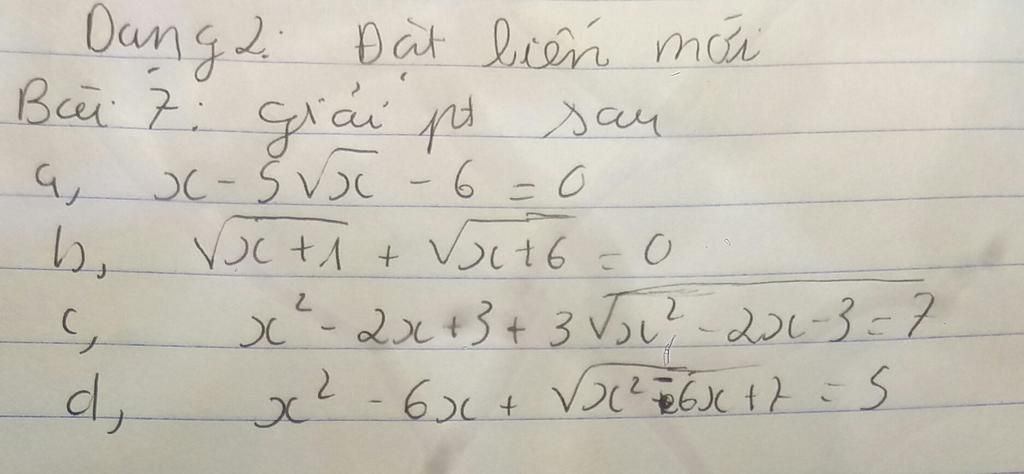 Dạng 2: Đặt biến mới
Bài 7: giải pt sau
a, x - 5√x - 6 = 0
b, √x+1 + √x+6 = 0
c, x² - 2x + 3 + 3√x² - 2x - 3 = 7
d, x² - 6x + √x² - 6x + 7 = 5